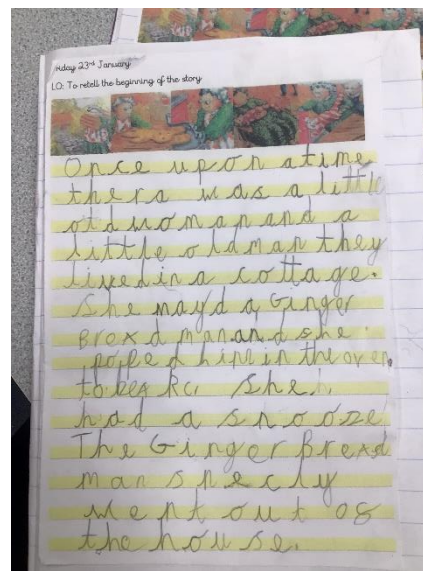 riday 23rd January
LO: To retell the beginning of the story
Once upon a time
thera was a little
old woman and a
little old man they
lived in a cottage.
She mayd a Ginger
Bread man and she
poped him in the oven
to She
had a snooze
The Ginger Bread
man snecly
went out of
the house.